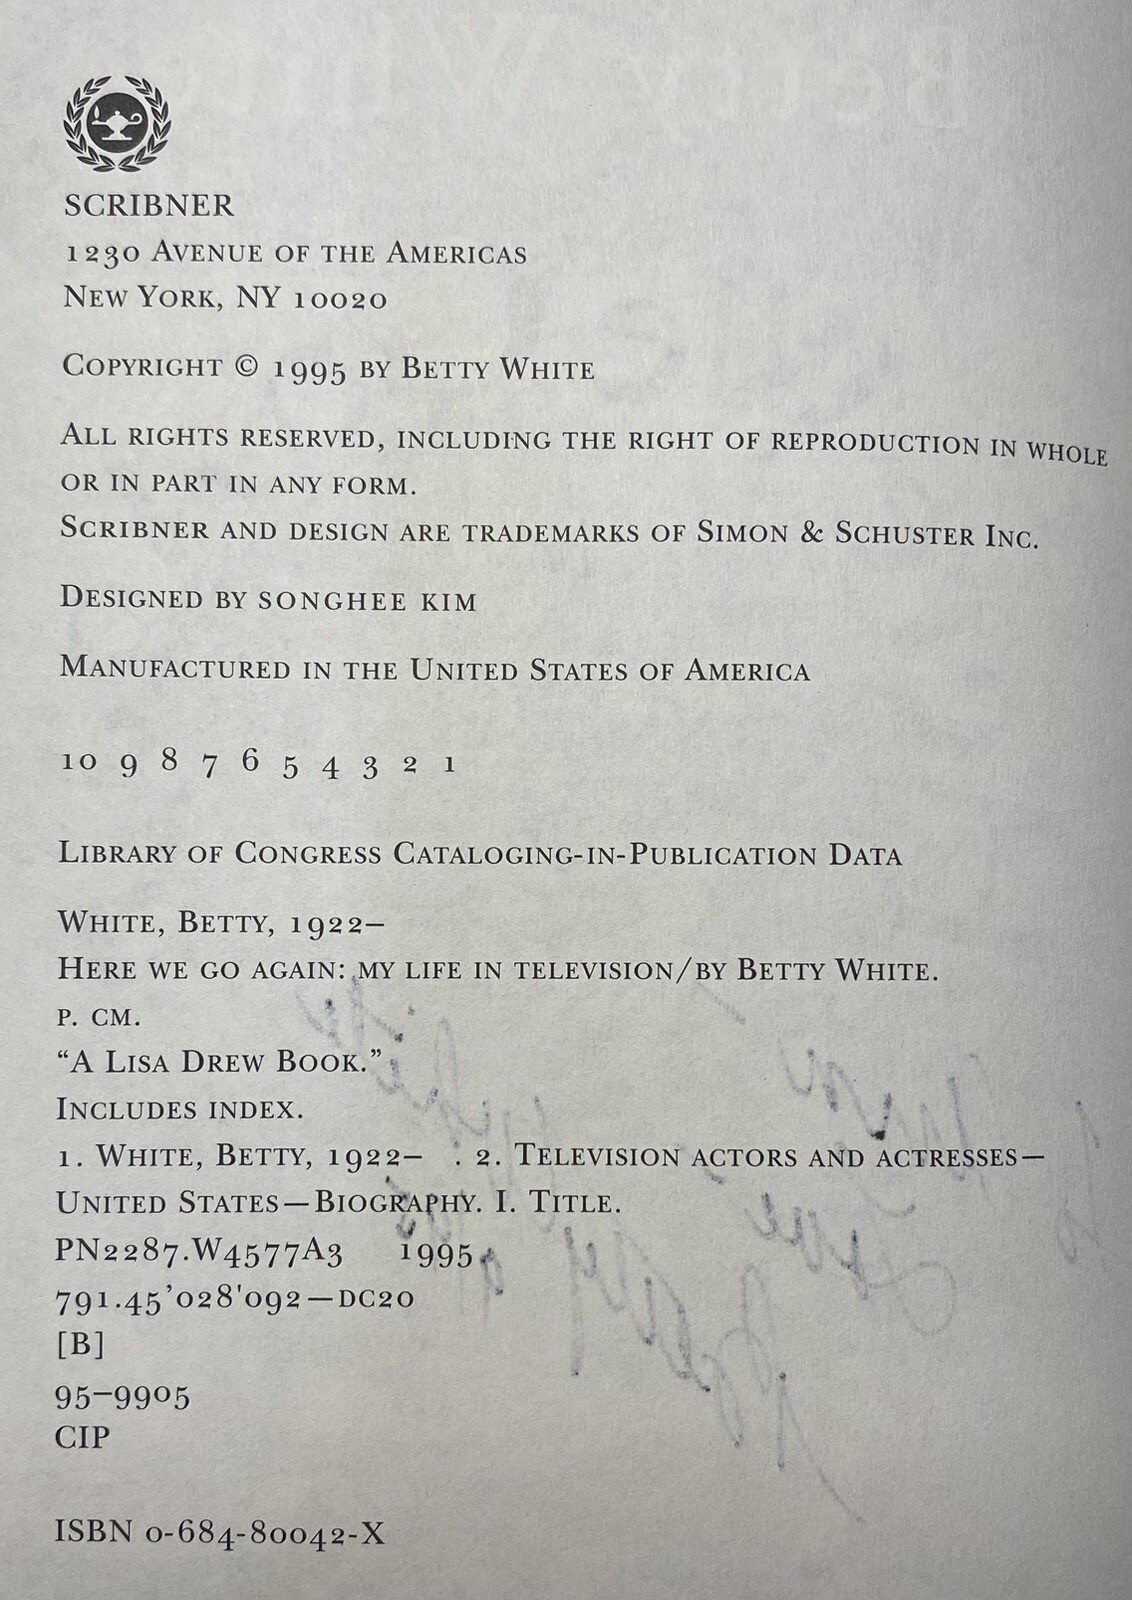 SCRIBNER
1230 Avenue of the Americas
New York, NY 10020
Copyright © 1995 by Betty White
All rights reserved, including the right of reproduction in whole
or in part in any form.
Scribner and design are trademarks of Simon & Schuster Inc.
Designed by SONGHEE KIM
Manufactured in the United States of America
10 9 8 7 6 5 4 3 2 1
Library of Congress Cataloging-in-Publication Data
White, Betty, 1922–
Here we go again: my life in television/by Betty White.
p. cm.
“A Lisa Drew Book.”
Includes index.
1. White, Betty, 1922– . 2. Television actors and actresses—
United States—Biography. I. Title.
PN2287.W4577A3 1995
791.45’028'092—dc20
[B]
95–9905
CIP
ISBN 0-684-80042-X